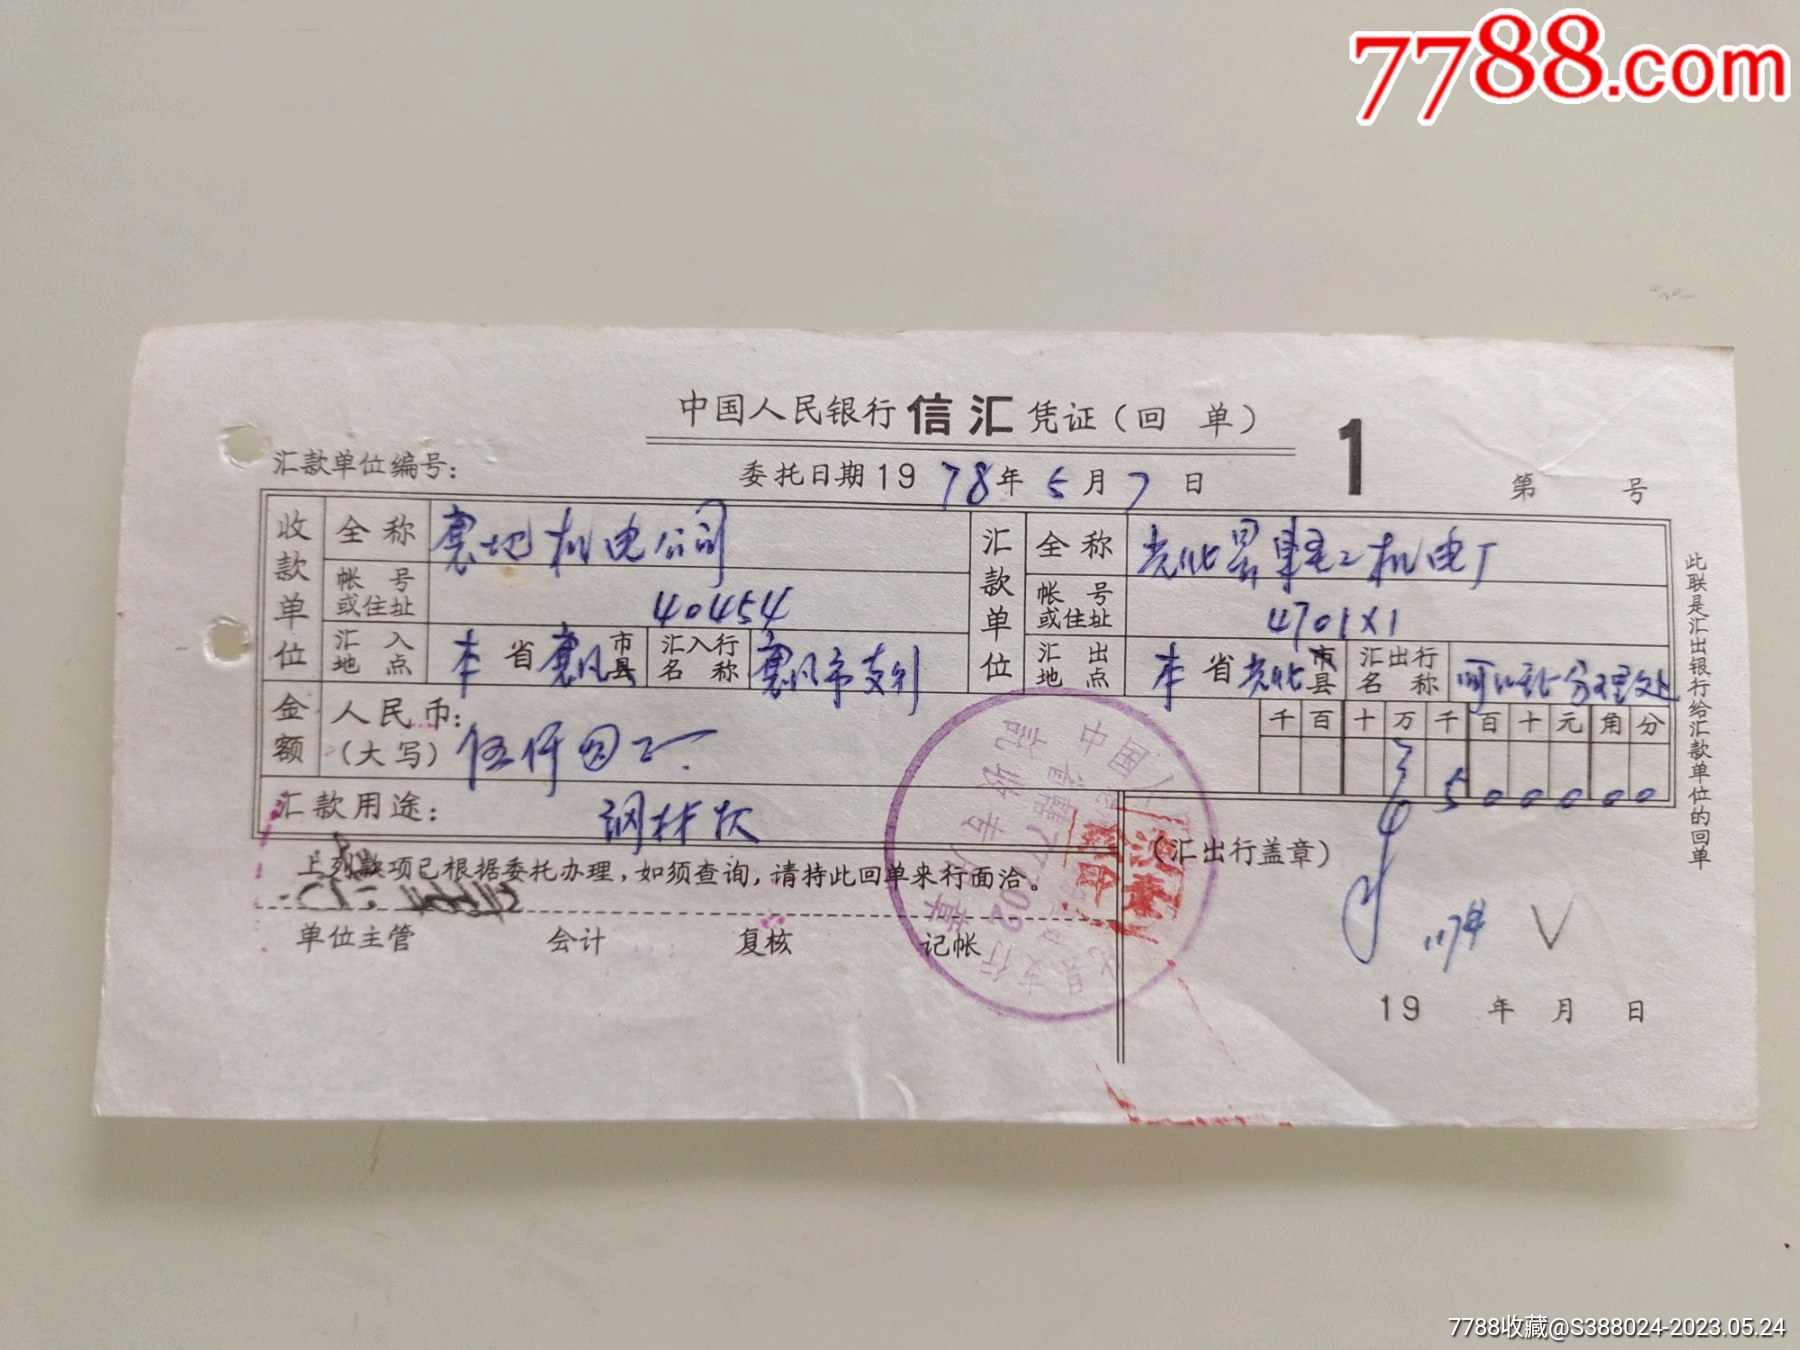 7788.com
中国人民银行 信汇 凭证（回 单）
1
汇款单位编号：
委托日期 19 78 年 5 月 7 日
第 号
收款单位
全称 襄地机电公司
帐号或住址 40454
汇入地点 本 省 襄凡 市县
汇入行名称 襄凡市支行
汇款单位
全称 光化县 机电厂
帐号或住址 4701X1
汇出地点 本 省 光化 市县
汇出行名称 分理处
金额
人民币：（大写） 伍仟圆
千 百 十 万 千 百 十 元 角 分
5 0 0 0 0 0
汇款用途： 钢材款
上列款项已根据委托办理，如须查询，请持此回单来行面洽。
（汇出行盖章）
单位主管 会计 复核 记帐
19 年 月 日
此联是汇出银行给汇款单位的回单
7788收藏@S388024-2023.05.24